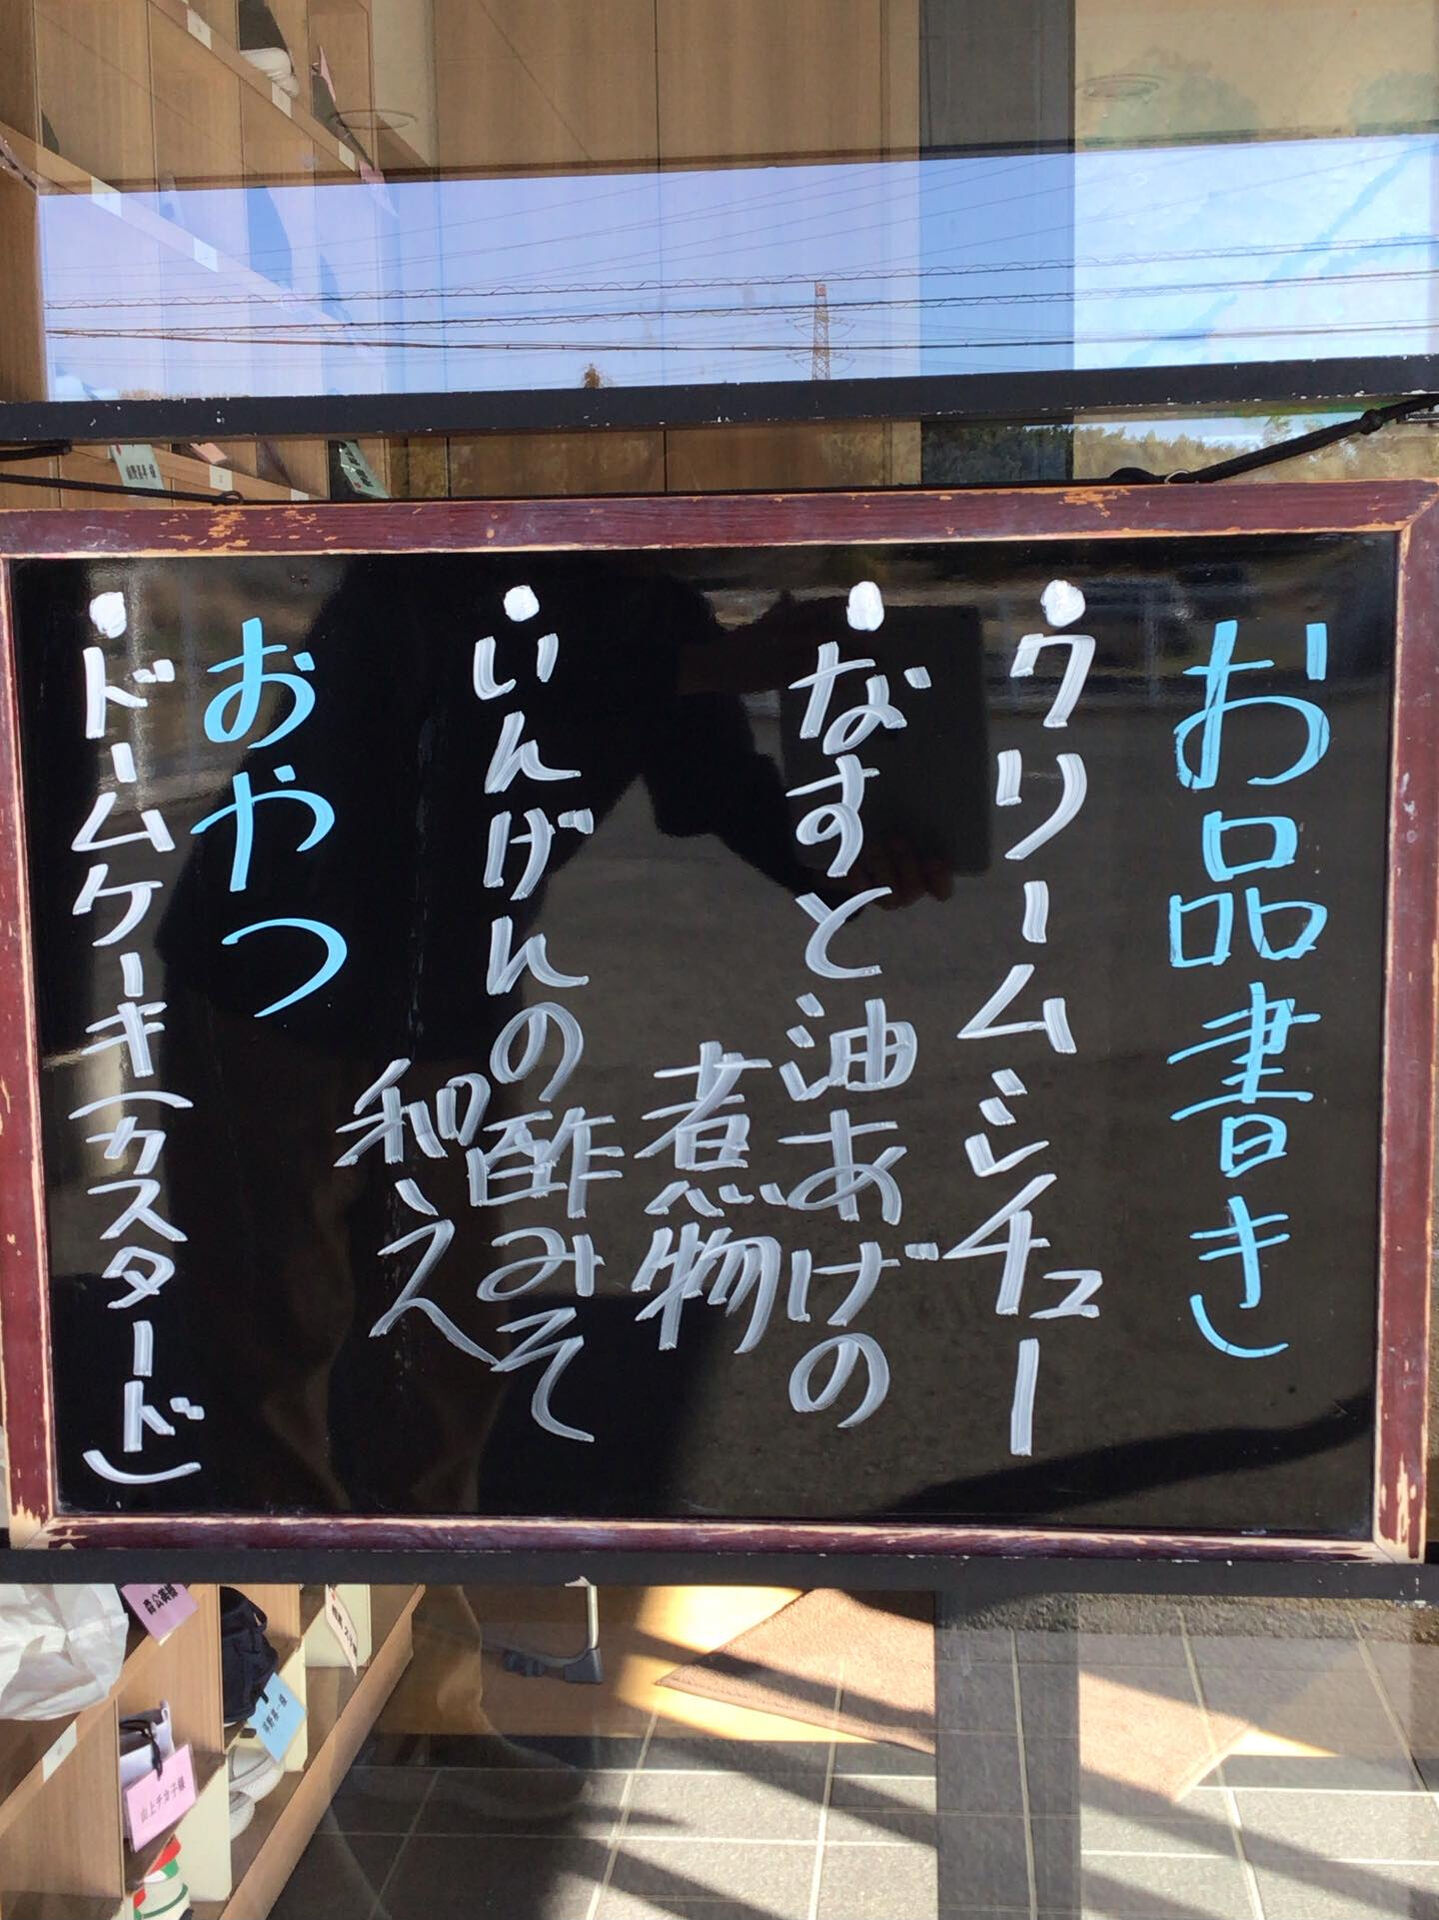 お品書き
・クリームシチュー
・なすと油あげの
煮物
・いんげんの酢みそ
和え
おやつ
・ドームケーキ(カスタード)
山上チカ子様